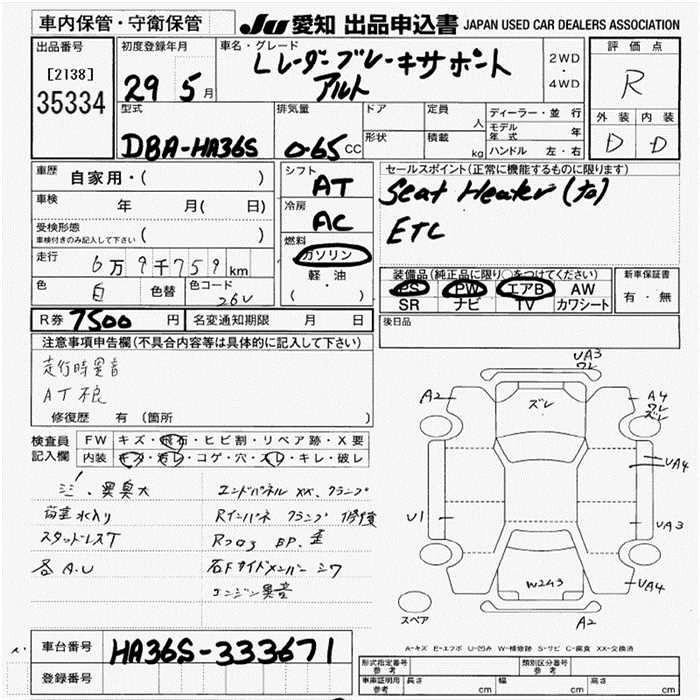 車内保管・守衛保管
JU 愛知 出品申込書 JAPAN USED CAR DEALERS ASSOCIATION
出品番号
[2138]
35334
初度登録年月
29 5月
車名・グレード
Lレーダーブレーキサポート
アルト
2WD
・
4WD
評価点
R
外装 内装
D D
型式
DBA-HA36S
排気量
0.65CC
ドア
形状
定員 人
積載 kg
ディーラー・並行
モデル年式 年
ハンドル 左・右
車歴 自家用・( )
車検 年 月( 日)
受検形態
車検付きのみ記入して下さい ( )
走行 6万9千759km
色 白 色替 色コード 26U
シフト
AT
冷房
AC
燃料
ガソリン
軽油
( ・ )
セールスポイント(正常に機能するものに限ります)
Seat Heater (
ETC
装備品(純正品に限り○をつけてください)
PS PW エアB AW
SR ナビ TV カワシート
新車保証書
有・無
R券 7500円 名変通知期限 月 日
後日品
注意事項申告欄(不具合内容等は具体的に記入して下さい)
走行時異音
AT不良
修復歴 有(箇所 )
検査員記入欄
FW キズ・飛石・ヒビ割・リペア跡・X要
内装 キズ・汚レ・コゲ・穴・スレ・キレ・破レ
異臭大
水入り
スタッドレスT
各A.U
エンドパネルXX、クランプ
Rインパネ クランプ 修復
BP.歪
右Fサイドメンバーシワ
エンジン異音
UA3
ワレ
A2
ズレ
A4
ワレ
ズレ
UA4
U1
UA3
W2A3
UA4
A2
スペア
A-キズ E-エクボ U-凹み W-補修跡 S-サビ C-腐食 XX-交換済
車台番号 HA36S-333671
登録番号
形式指定番号
参考
類別区分番号
参考
車庫証明用
参考
長さ cm 幅 cm 高さ cm